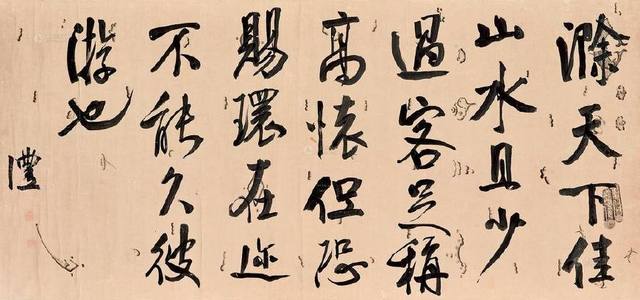 滁天下佳
山水且少
過客足稱
高懷但恐
賜環在迩
不能久彼
游也